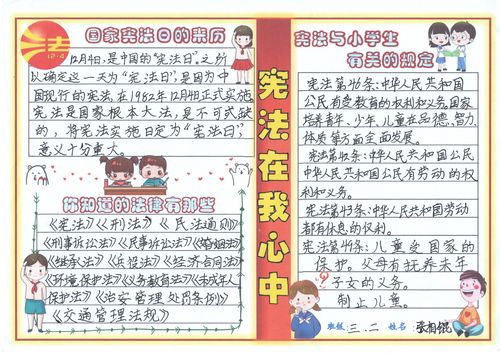 法
12·4
国家宪法日的来历
12月4日,是中国的“宪法日”。之所
以确定这一天为“宪法日”,是因为中
国现行的宪法在1982年12月4日正式实施
宪法是国家根本大法,是不可或缺
的,将宪法实施日定为“宪法日”,
意义十分重大。
你知道的法律有那些
《宪法》《刑法》《民法通则》
《刑事诉讼法》《民事诉讼法》《婚姻法》
《继承法》《兵役法》《经济合同法》
《环境保护法》《义务教育法》《未成年人
保护法》《治安管理处罚条例》
《交通管理法规》
宪法在我心中
宪法与小学生
有关的规定
宪法第46条:中华人民共和国
公民有受教育的权利和义务。国家
培养青年、少年、儿童在品德、智力、
体质等方面全面发展。
宪法第42条:中华人民共和国公民
中华人民共和国公民有劳动的权
利和义务。
宪法第43条:中华人民共和国劳动
都有休息的权利。
宪法第49条:儿童受国家的
保护。父母有抚养未年
子女的义务。
制止儿童。
班级:三.二 姓名:张相锟